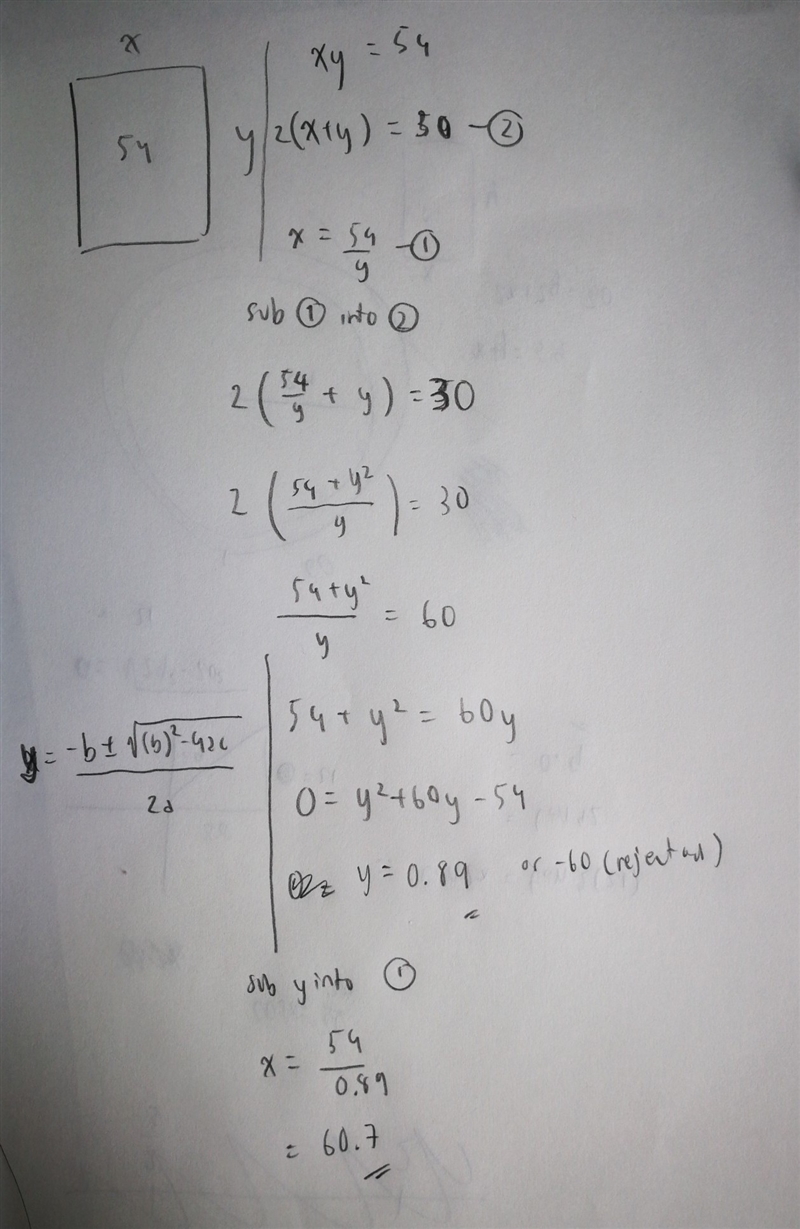 x
54
y
xy = 54
2(x+y) = 30 - ②
x = 54/y - ①
sub ① into ②
2(54/y + y) = 30
2((54 + y²)/y) = 30
(54 + y²)/y = 60
y = (-b ± √((b)² - 4ac))/2a
54 + y² = 60y
0 = y² + 60y - 54
y = 0.89 or -60 (rejected)
sub y into ①
x = 54/0.89
= 60.7